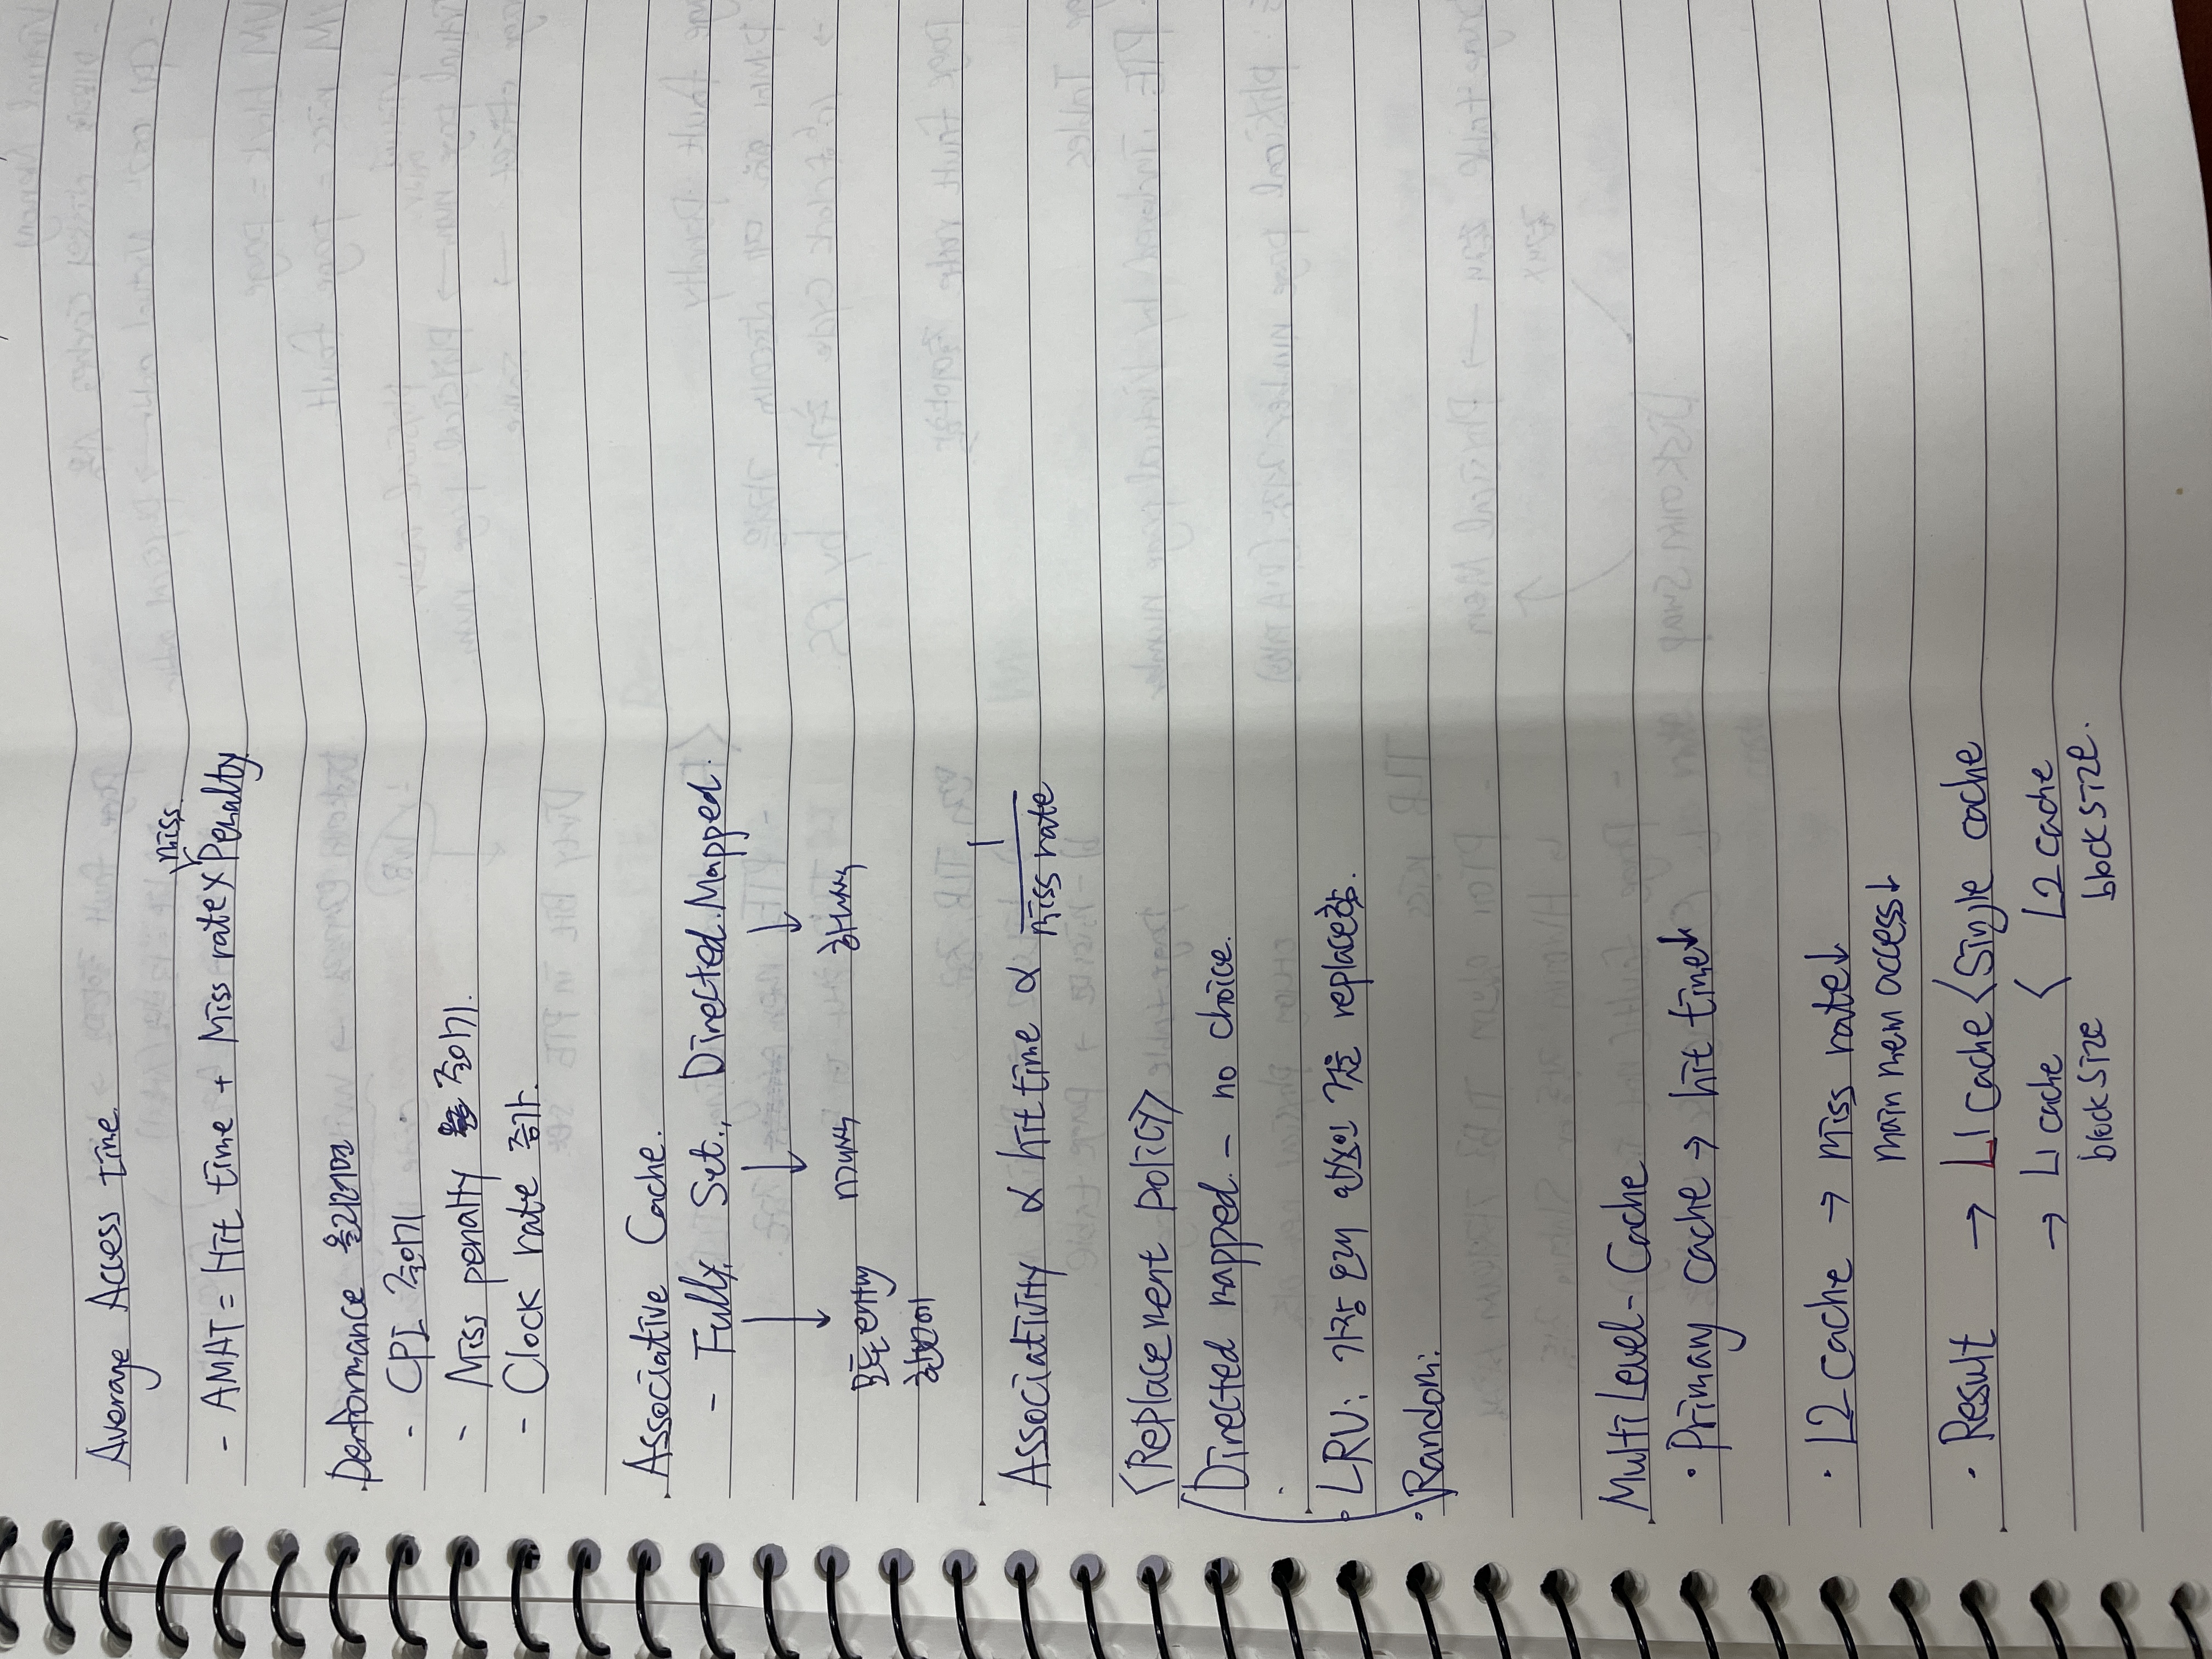 Average Access time
- AMAT = Hit time + Miss rate x miss Penalty
Performance 올리려면
- CPI 줄이기
- Miss penalty 줄이기.
- Clock rate 증가.
Associative Cache.
- Fully, Set., Directed.Mapped.
모든 entry 한번에
n개씩
하나씩
Associativity ∝ hit time ∝ 1/miss rate
<Replacement policy>
Directed mapped. - no choice.
· LRU: 가장 오래 안쓰인 것을 replace함.
· Random:
Multi Level - Cache
· Primary cache → hit time↓
· L2 cache → miss rate↓
main mem access↓
· Result → L1 cache < Single cache
→ L1 cache < L2 cache
block size block size.